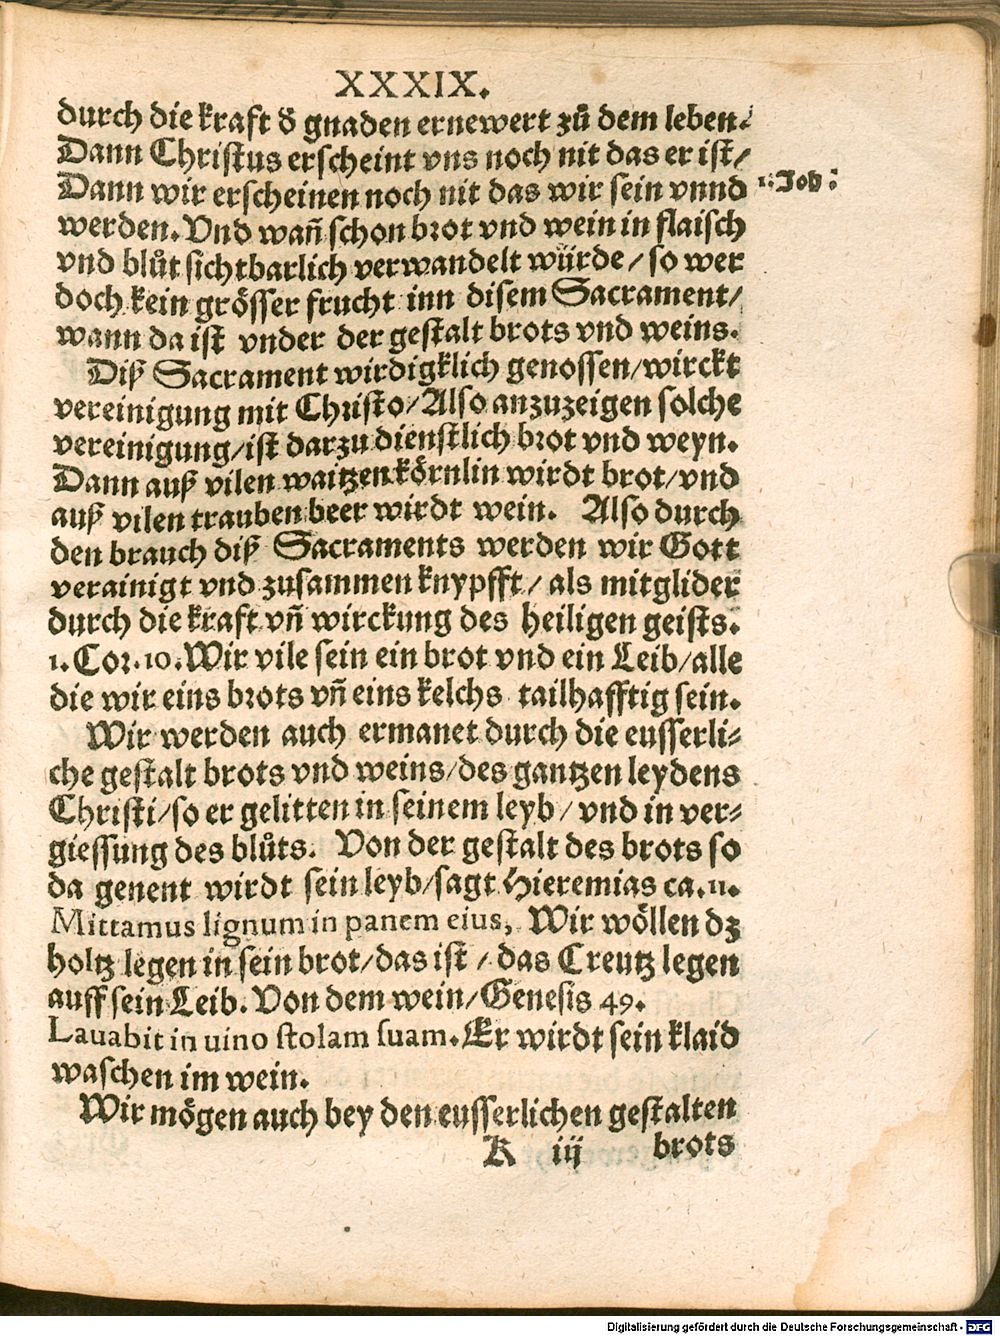 XXXIX.
durch die kraft d᷑ gnaden ernewert zů dem leben.
Dann Christus erscheint vns noch nit das er ist/
Dann wir erscheinen noch nit das wir sein vnnd
1. Joh:
werden. Vnd wañ schon brot vnd wein in flaisch
vnd blůt sichtbarlich verwandelt würde/ so wer
doch kein grösser frucht inn disem Sacrament/
wann da ist vnder der gestalt brots vnd weins.
Diß Sacrament wirdigklich genossen/wirckt
vereinigung mit Christo/Also anzuzeigen solche
vereinigung/ist darzu dienstlich brot vnd weyn.
Dann auß vilen waitzen körnlin wirdt brot/vnd
auß vilen trauben beer wirdt wein. Also durch
den brauch diß Sacraments werden wir Gott
verainigt vnd zusammen knypfft/ als mitglider
durch die kraft vñ wirckung des heiligen geists.
1. Cor. 10. Wir vile sein ein brot vnd ein Leib/alle
die wir eins brots vñ eins kelchs tailhafftig sein.
Wir werden auch ermanet durch die eusserli-
che gestalt brots vnd weins/des gantzen leydens
Christi/so er gelitten in seinem leyb/ vnd in ver-
giessung des blůts. Von der gestalt des brots so
da genent wirdt sein leyb/sagt Hieremias ca. 11.
Mittamus lignum in panem eius, Wir wöllen dz
holtz legen in sein brot/das ist/ das Creutz legen
auff sein Leib. Von dem wein/Genesis 49.
Lauabit in uino stolam suam. Er wirdt sein klaid
waschen im wein.
Wir mögen auch bey den eusserlichen gestalten
K iij brots
Digitalisierung gefördert durch die Deutsche Forschungsgemeinschaft - DFG